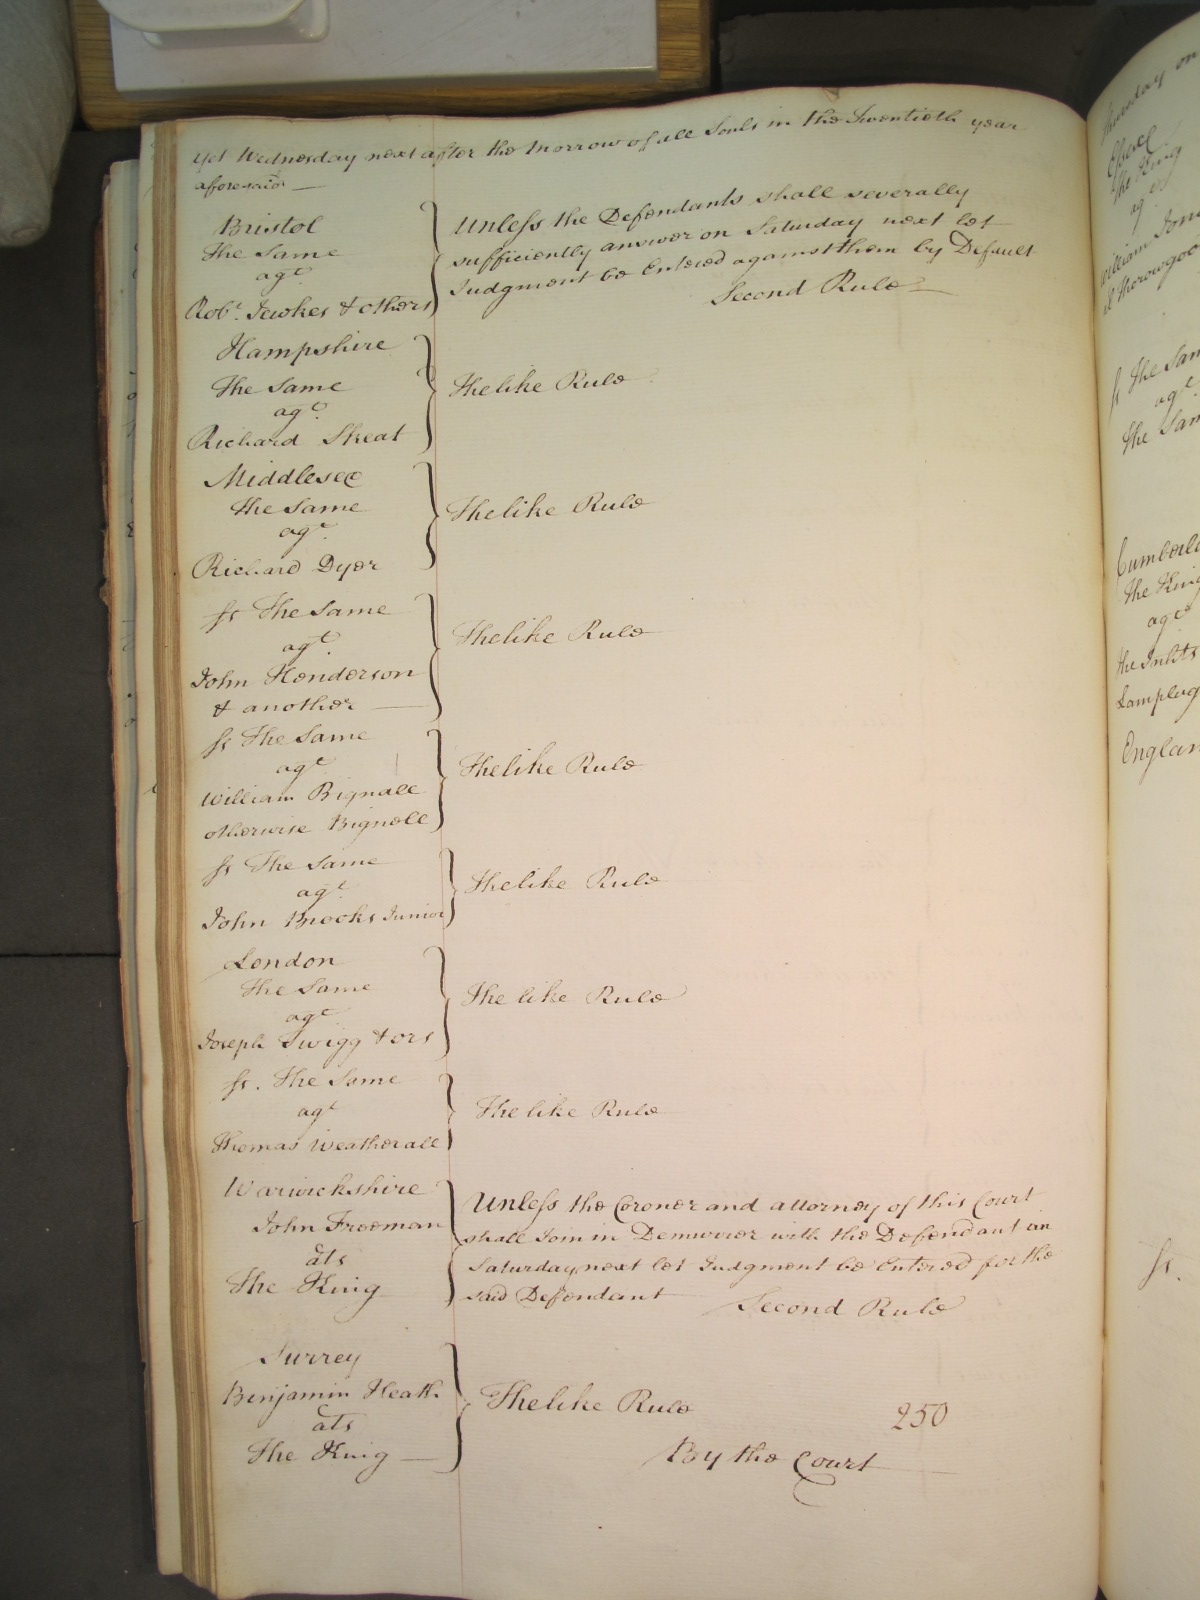 Yet Wednesday next after the Morrow of all Souls in the Twentieth year
aforesaid
Bristol
The Same
agt
Robt. Jewkes & others
Unless the Defendants shall severally
sufficiently answer on Saturday next let
Judgment be Entered against them by Default
Second Rule
Hampshire
The Same
agt.
Richard Skeat
The like Rule
Middlesex
The Same
agt.
Richard Dyer
The like Rule
ss The Same
agt.
John Henderson
& another
The like Rule
ss The Same
agt
William Bignall
otherwise Bignell
The like Rule
ss The Same
agt.
John Brooks Junior
The like Rule
London
The Same
agt
Joseph Twigg & ors
The like Rule
ss. The Same
agt
Thomas Weatherall
The like Rule
Warwickshire
John Freeman
ats
The King
Unless the Coroner and attorney of this Court
shall Join in Demurrer with the Defendant on
Saturday next let Judgment be Entered for the
said Defendant
Second Rule
Surrey
Benjamin Heath
ats
The King
The like Rule
250
By the Court
Thursday on
Essex
The King
agt
William
ss The Sam
agt.
The Sam
Cumberl
The King
agt
the Inhts
Lamplug
Englan
ss.